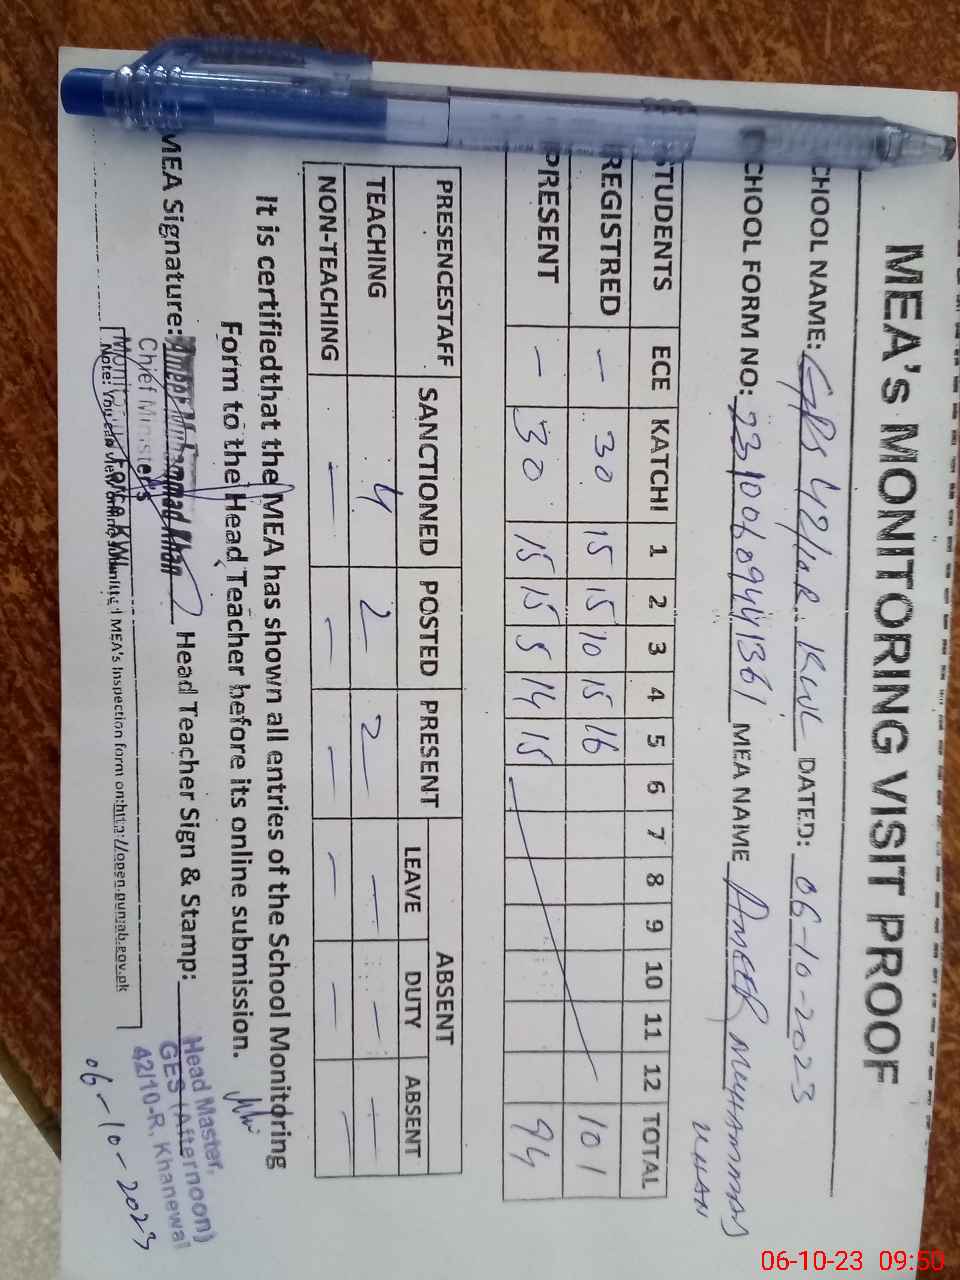 MEA's MONITORING VISIT PROOF
CHOOL NAME: GPS 42/10R KWL DATED: 06-10-2023
CHOOL FORM NO: 23100689441361 MEA NAME AMEER MUHAMMAD
KHAN
STUDENTS ECE KATCHI 1 2 3 4 5 6 7 8 9 10 11 12 TOTAL
REGISTRED — 30 15 15 10 15 16 101
PRESENT — 30 15 15 5 14 15 94
PRESENCESTAFF SANCTIONED POSTED PRESENT ABSENT
LEAVE DUTY ABSENT
TEACHING 4 2 2 — — —
NON-TEACHING — — — — — —
It is certifiedthat the MEA has shown all entries of the School Monitoring
Form to the Head Teacher before its online submission.
MEA Signature: Ameer Muhammad Khan Head Teacher Sign & Stamp:
Chief Minister's
Head Master,
GES (Afternoon)
42/10-R, Khanewal
Note: You can view MEA's Inspection form on:http://open.punjab.gov.pk
06-10-2023
06-10-23 09:50